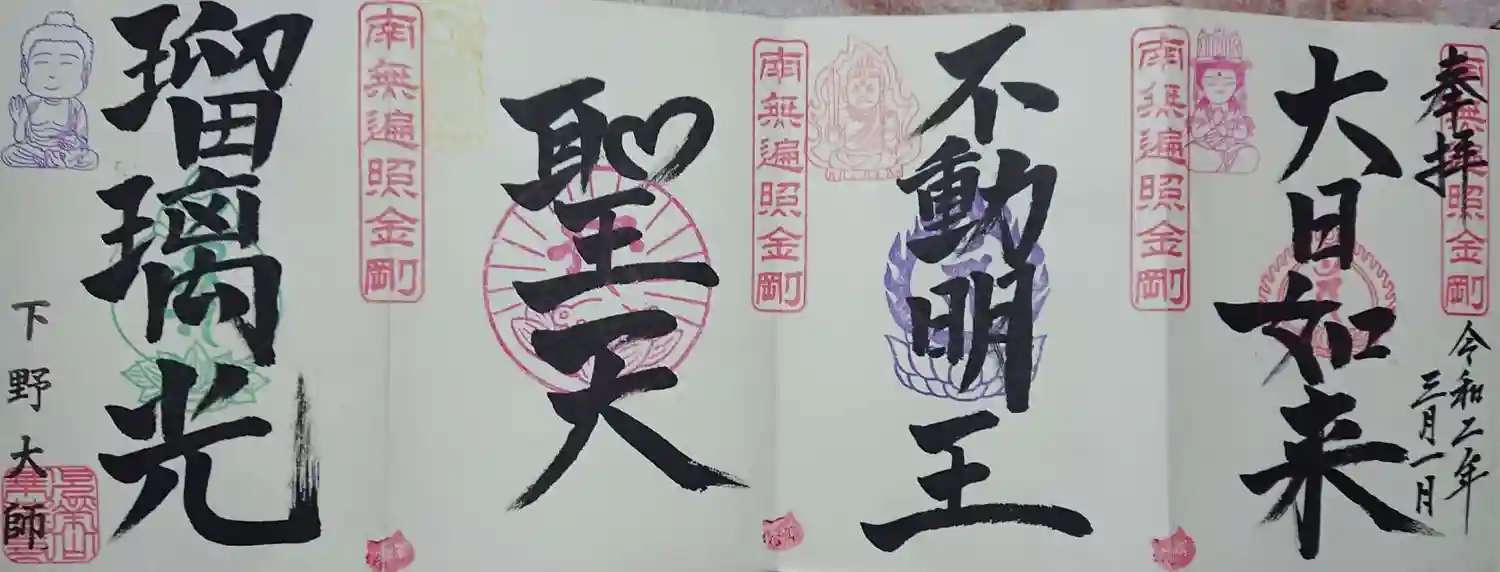 奉拝
南無遍照金剛
令和二年
三月一日
大日如来
南無遍照金剛
不動明王
南無遍照金剛
聖天
南無遍照金剛
瑠璃光
下野大師